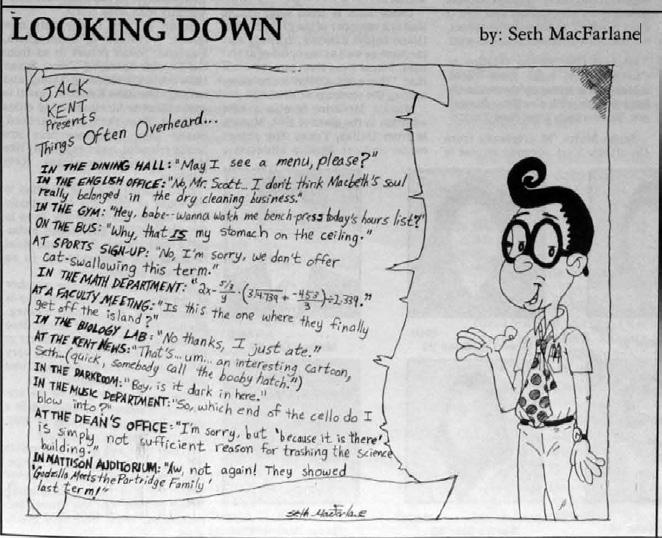 LOOKING DOWN
by: Seth MacFarlane
JACK
KENT
Presents
Things Often Overheard...
IN THE DINING HALL: "May I see a menu, please?"
IN THE ENGLISH OFFICE: "No, Mr. Scott... I don't think Macbeth's soul
really belonged in the dry cleaning business."
IN THE GYM: "Hey, babe--wanna watch me bench-press today's hours list?"
ON THE BUS: "Why, that IS my stomach on the ceiling."
AT SPORTS SIGN-UP: "No, I'm sorry, we don't offer
cat-swallowing this term."
IN THE MATH DEPARTMENT:
AT A FACULTY MEETING: "Is this the one where they finally
get off the island?"
IN THE BIOLOGY LAB: "No thanks, I just ate."
AT THE KENT NEWS: "That's...um...an interesting cartoon,
Seth...(quick, somebody call the booby hatch.")
IN THE DARKROOM: "Boy, is it dark in here."
IN THE MUSIC DEPARTMENT: "So, which end of the cello do I
blow into?"
AT THE DEAN'S OFFICE: "I'm sorry, but 'because it is there'
is simply not sufficient reason for trashing the science
building."
IN MATTISON AUDITORIUM: "Aw, not again! They showed
'Godzilla Meets the Partridge Family'
last term!"
Seth MacFarlane